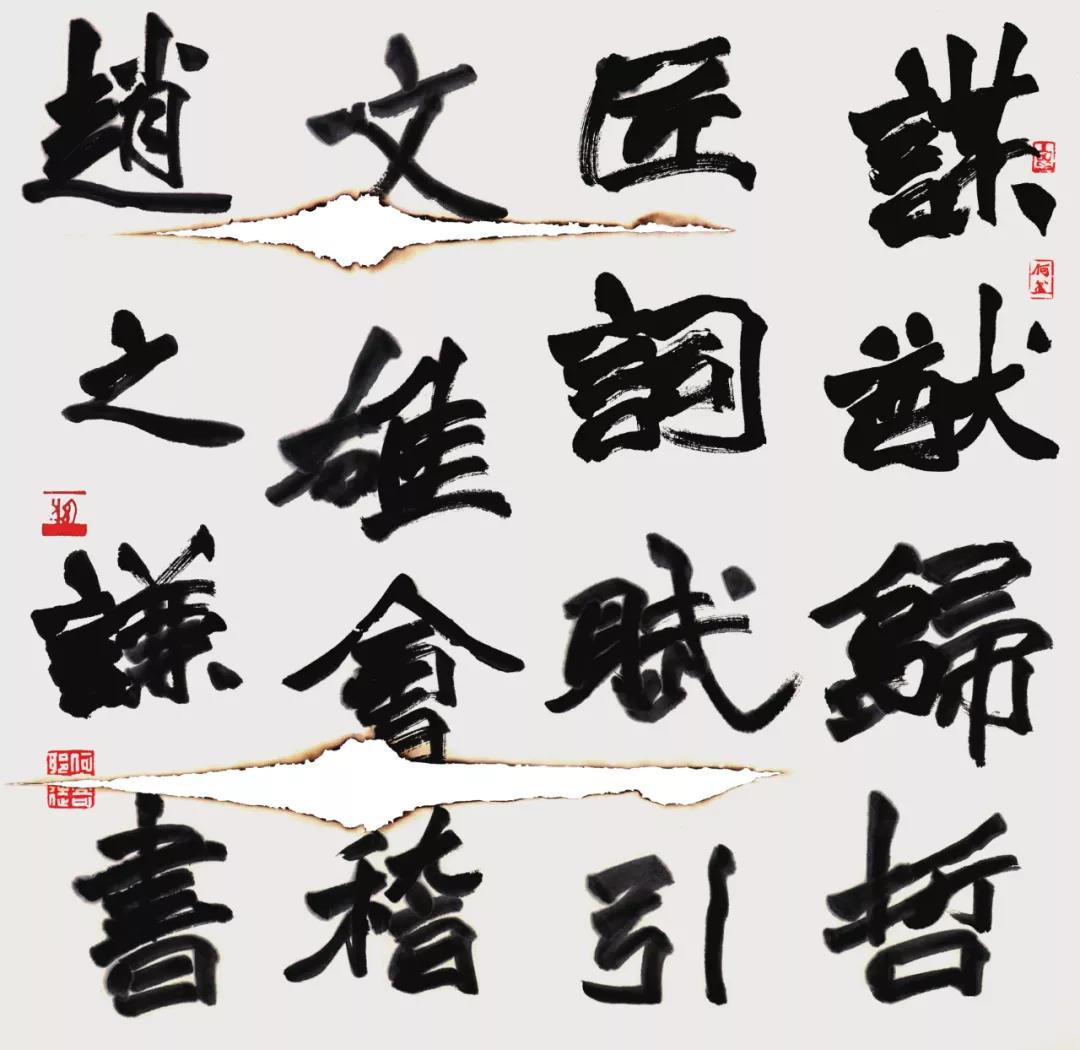 謀猷歸哲
匠詞賦引
文雄會稽
趙之謙書